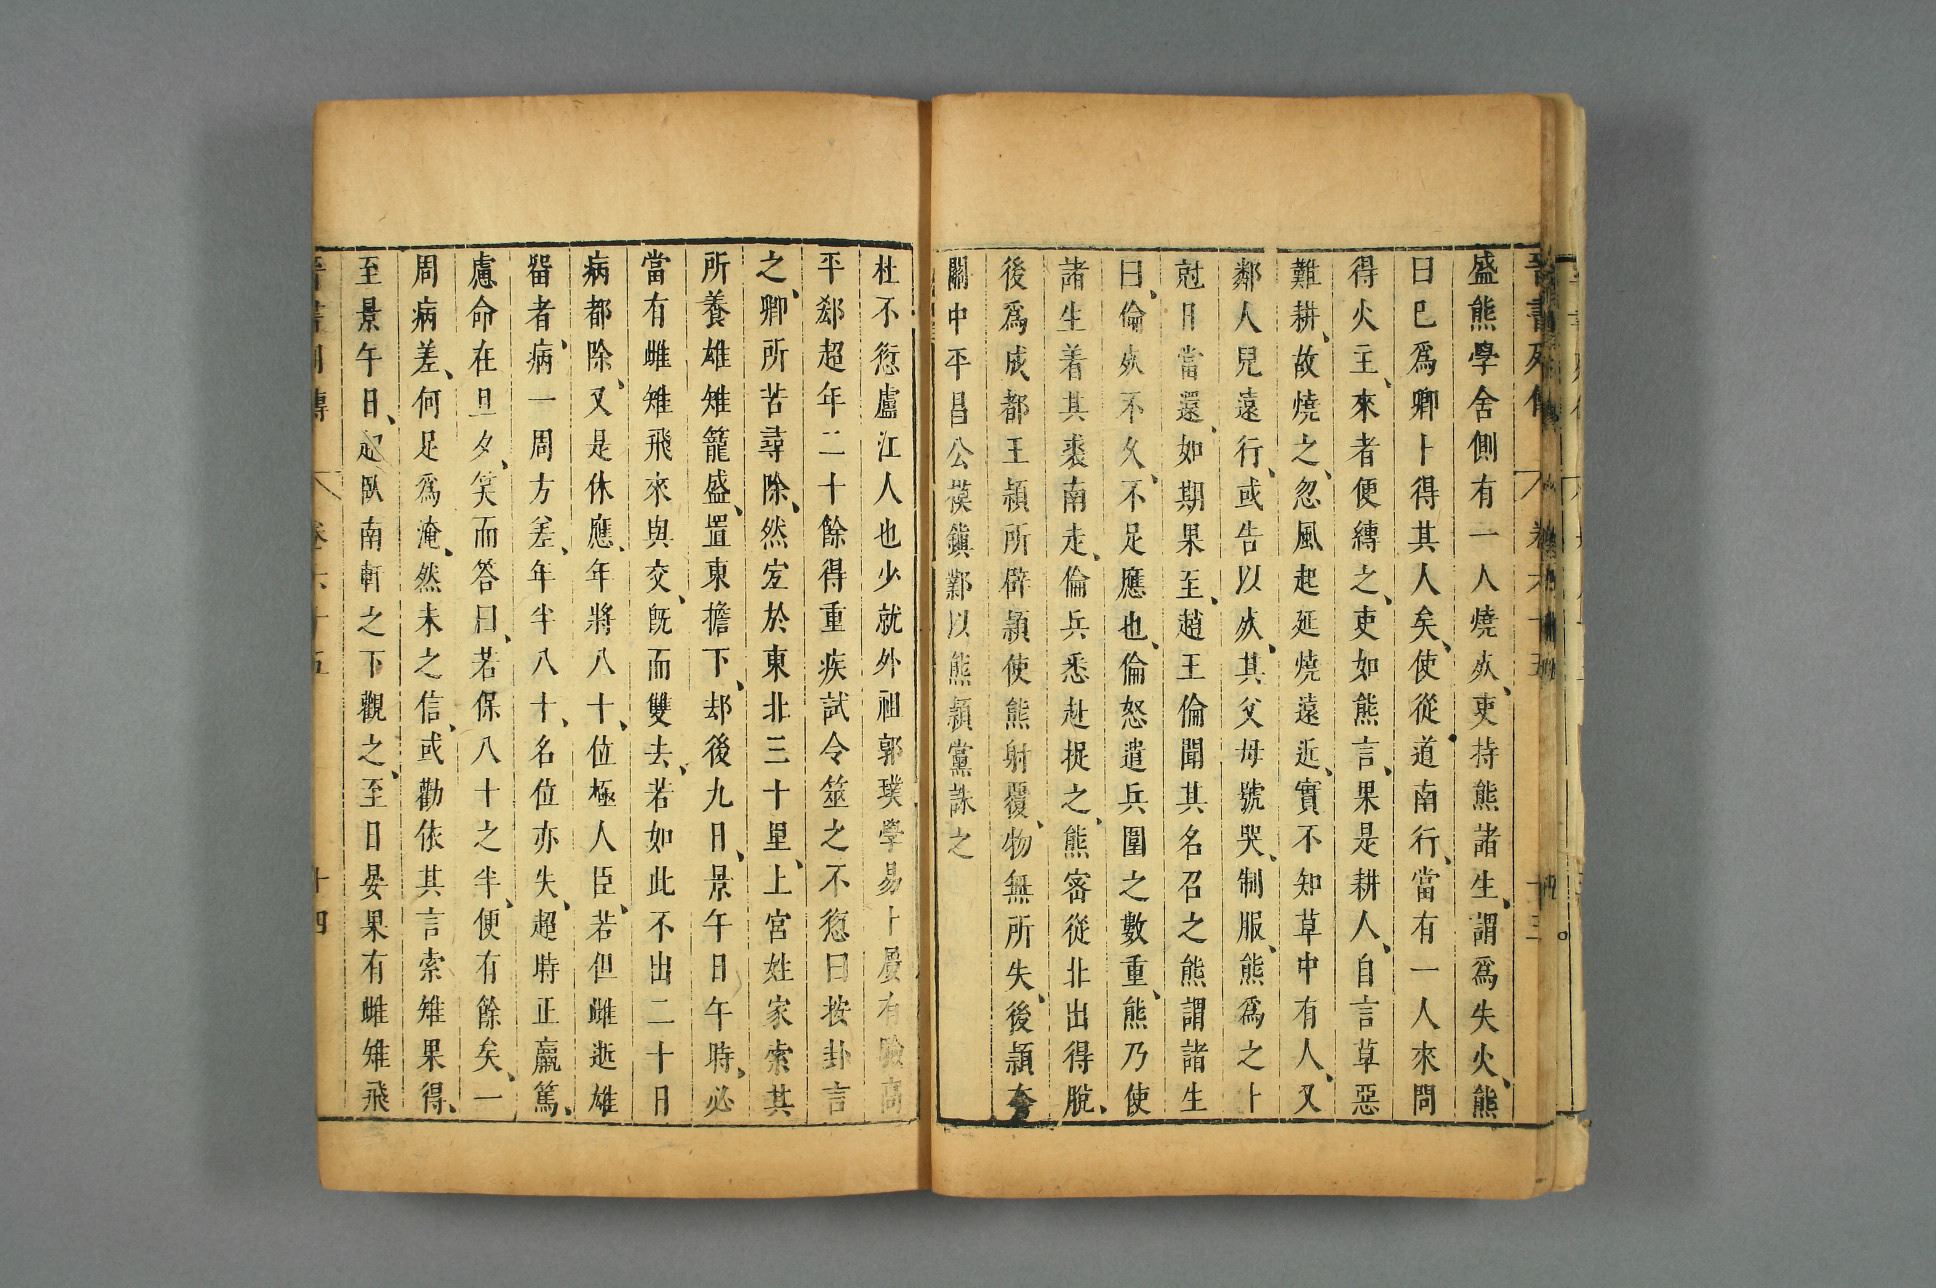 晉書列傳　卷六十五　十三
盛熊學舍側有一人燒死、吏持熊諸生、謂爲失火、熊
曰巳爲卿卜得其人矣、使從道南行、當有一人來問
得火主、來者便縛之、吏如熊言、果是耕人、自言草惡
難耕、故燒之、忽風起延燒遠近、實不知草中有人、又
鄰人兒遠行、或告以死、其父母號哭、制服、熊爲之卜
尅日當還、如期果至、趙王倫聞其名召之熊謂諸生
曰、倫死不久、不足應也、倫怒遣兵圍之數重、熊乃使
諸生着其裘南走、倫兵悉赴捉之、熊密從北出得脫、
後爲成都王頴所辟頴使熊射覆、物無所失、後頴奔
關中平昌公模鎭鄴以熊頴黨誅之
杜不愆廬江人也少就外祖郭璞學易卜屢有驗高
平郄超年二十餘得重疾試令筮之不愆曰按卦言
之、卿所苦尋除、然宜於東北三十里、上宮姓家索其
所養雄雉籠盛、置東檐下、却後九日、景午日午時、必
當有雌雉飛來與交、旣而雙去、若如此不出二十日
病都除、又是休應、年將八十、位極人臣、若但雌逝雄
畱者、病一周方差、年半八十、名位亦失、超時正羸篤、
慮命在旦夕、笑而答曰、若保八十之半、便有餘矣、一
周病差、何足爲淹、然未之信、或勸依其言索雉果得、
至景午日、起臥南軒之下觀之、至日晏果有雌雉飛
卷六十五　十四